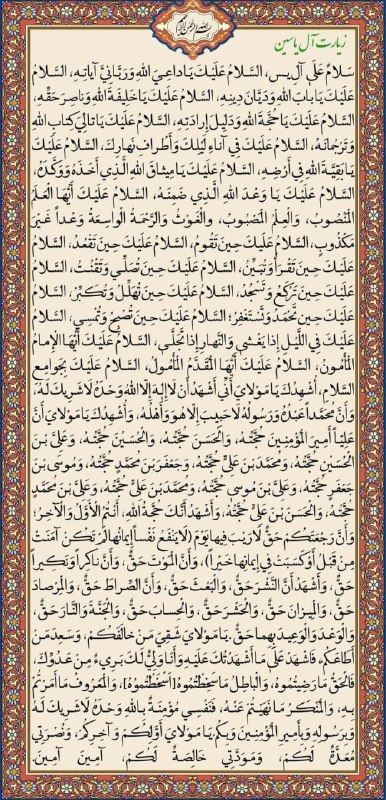 بسم الله الرحمن الرحیم
زیارت آل یاسین
سَلامٌ عَلَى آلِ يس، السَّلامُ عَلَيْكَ يَا دَاعِيَ اللهِ وَرَبَّانِيَّ آيَاتِهِ، السَّلامُ
عَلَيْكَ يَا بَابَ اللهِ وَدَيَّانَ دِينِهِ، السَّلامُ عَلَيْكَ يَا خَلِيفَةَ اللهِ وَنَاصِرَ حَقِّهِ،
السَّلامُ عَلَيْكَ يَا حُجَّةَ اللهِ وَدَلِيلَ إِرَادَتِهِ، السَّلامُ عَلَيْكَ يَا تَالِيَ كِتَابِ اللهِ
وَتَرْجُمَانَهُ، السَّلامُ عَلَيْكَ فِي آنَاءِ لَيْلِكَ وَأَطْرَافِ نَهَارِكَ، السَّلامُ عَلَيْكَ
يَا بَقِيَّةَ اللهِ فِي أَرْضِهِ، السَّلامُ عَلَيْكَ يَا مِيثَاقَ اللهِ الَّذِي أَخَذَهُ وَوَكَّدَهُ،
السَّلامُ عَلَيْكَ يَا وَعْدَ اللهِ الَّذِي ضَمِنَهُ، السَّلامُ عَلَيْكَ أَيُّهَا الْعَلَمُ
الْمَنْصُوبُ، وَالْعِلْمُ الْمَصْبُوبُ، وَالْغَوْثُ وَالرَّحْمَةُ الْوَاسِعَةُ وَعْداً غَيْرَ
مَكْذُوبٍ، السَّلامُ عَلَيْكَ حِينَ تَقُومُ، السَّلامُ عَلَيْكَ حِينَ تَقْعُدُ، السَّلامُ
عَلَيْكَ حِينَ تَقْرَأُ وَتُبَيِّنُ، السَّلامُ عَلَيْكَ حِينَ تُصَلِّي وَتَقْنُتُ، السَّلامُ
عَلَيْكَ حِينَ تَرْكَعُ وَتَسْجُدُ، السَّلامُ عَلَيْكَ حِينَ تُهَلِّلُ وَتُكَبِّرُ، السَّلامُ
عَلَيْكَ حِينَ تَحْمَدُ وَتَسْتَغْفِرُ؛ السَّلامُ عَلَيْكَ حِينَ تُصْبِحُ وَتُمْسِي، السَّلامُ
عَلَيْكَ فِي اللَّيْلِ إِذَا يَغْشَى وَالنَّهَارِ إِذَا تَجَلَّى، السَّلامُ عَلَيْكَ أَيُّهَا الإِمَامُ
الْمَأْمُونُ، السَّلامُ عَلَيْكَ أَيُّهَا الْمُقَدَّمُ الْمَأْمُولُ، السَّلامُ عَلَيْكَ بِجَوَامِعِ
السَّلامِ، أُشْهِدُكَ يَا مَوْلايَ أَنِّي أَشْهَدُ أَنْ لا إِلهَ إِلَّا اللهُ وَحْدَهُ لا شَرِيكَ لَهُ،
وَأَنَّ مُحَمَّداً عَبْدُهُ وَرَسُولُهُ لا حَبِيبَ إِلَّا هُوَ وَأَهْلُهُ، وَأُشْهِدُكَ يَا مَوْلايَ أَنَّ
عَلِيّاً أَمِيرَ الْمُؤْمِنِينَ حُجَّتُهُ، وَالْحَسَنَ حُجَّتُهُ، وَالْحُسَيْنَ حُجَّتُهُ، وَعَلِيَّ بْنَ
الْحُسَيْنِ حُجَّتُهُ، وَمُحَمَّدَ بْنَ عَلِيٍّ حُجَّتُهُ، وَجَعْفَرَ بْنَ مُحَمَّدٍ حُجَّتُهُ، وَمُوسَى بْنَ
جَعْفَرٍ حُجَّتُهُ، وَعَلِيَّ بْنَ مُوسَى حُجَّتُهُ، وَمُحَمَّدَ بْنَ عَلِيٍّ حُجَّتُهُ، وَعَلِيَّ بْنَ مُحَمَّدٍ
حُجَّتُهُ، وَالْحَسَنَ بْنَ عَلِيٍّ حُجَّتُهُ، وَأَشْهَدُ أَنَّكَ حُجَّةُ اللهِ، أَنْتُمُ الأَوَّلُ وَالآخِرُ؛
وَأَنَّ رَجْعَتَكُمْ حَقٌّ لا رَيْبَ فِيهَا يَوْمَ (لا يَنْفَعُ نَفْساً إِيمَانُهَا لَمْ تَكُنْ آمَنَتْ
مِنْ قَبْلُ أَوْ كَسَبَتْ فِي إِيمَانِهَا خَيْراً)، وَأَنَّ الْمَوْتَ حَقٌّ، وَأَنَّ نَاكِراً وَنَكِيراً
حَقٌّ، وَأَشْهَدُ أَنَّ النَّشْرَ حَقٌّ، وَالْبَعْثَ حَقٌّ، وَأَنَّ الصِّرَاطَ حَقٌّ، وَالْمِرْصَادَ
حَقٌّ، وَالْمِيزَانَ حَقٌّ، وَالْحَشْرَ حَقٌّ، وَالْحِسَابَ حَقٌّ، وَالْجَنَّةَ وَالنَّارَ حَقٌّ،
وَالْوَعْدَ وَالْوَعِيدَ بِهِمَا حَقٌّ. يَا مَوْلايَ شَقِيَ مَنْ خَالَفَكُمْ، وَسَعِدَ مَنْ
أَطَاعَكُمْ، فَاشْهَدْ عَلَى مَا أَشْهَدْتُكَ عَلَيْهِ وَأَنَا وَلِيٌّ لَكَ بَرِيءٌ مِنْ عَدُوِّكَ،
فَالْحَقُّ مَا رَضِيتُمُوهُ، وَالْبَاطِلُ مَا سَخِطْتُمُوهُ [أَسْخَطْتُمُوهُ]، وَالْمَعْرُوفُ مَا أَمَرْتُمْ
بِهِ، وَالْمُنْكَرُ مَا نَهَيْتُمْ عَنْهُ، فَنَفْسِي مُؤْمِنَةٌ بِاللهِ وَحْدَهُ لا شَرِيكَ لَهُ
وَبِرَسُولِهِ وَبِأَمِيرِ الْمُؤْمِنِينَ وَبِكُمْ يَا مَوْلايَ أَوَّلِكُمْ وَآخِرِكُمْ، وَنُصْرَتِي
مُعَدَّةٌ لَكُمْ، وَمَوَدَّتِي خَالِصَةٌ لَكُمْ، آمِينَ آمِينَ.